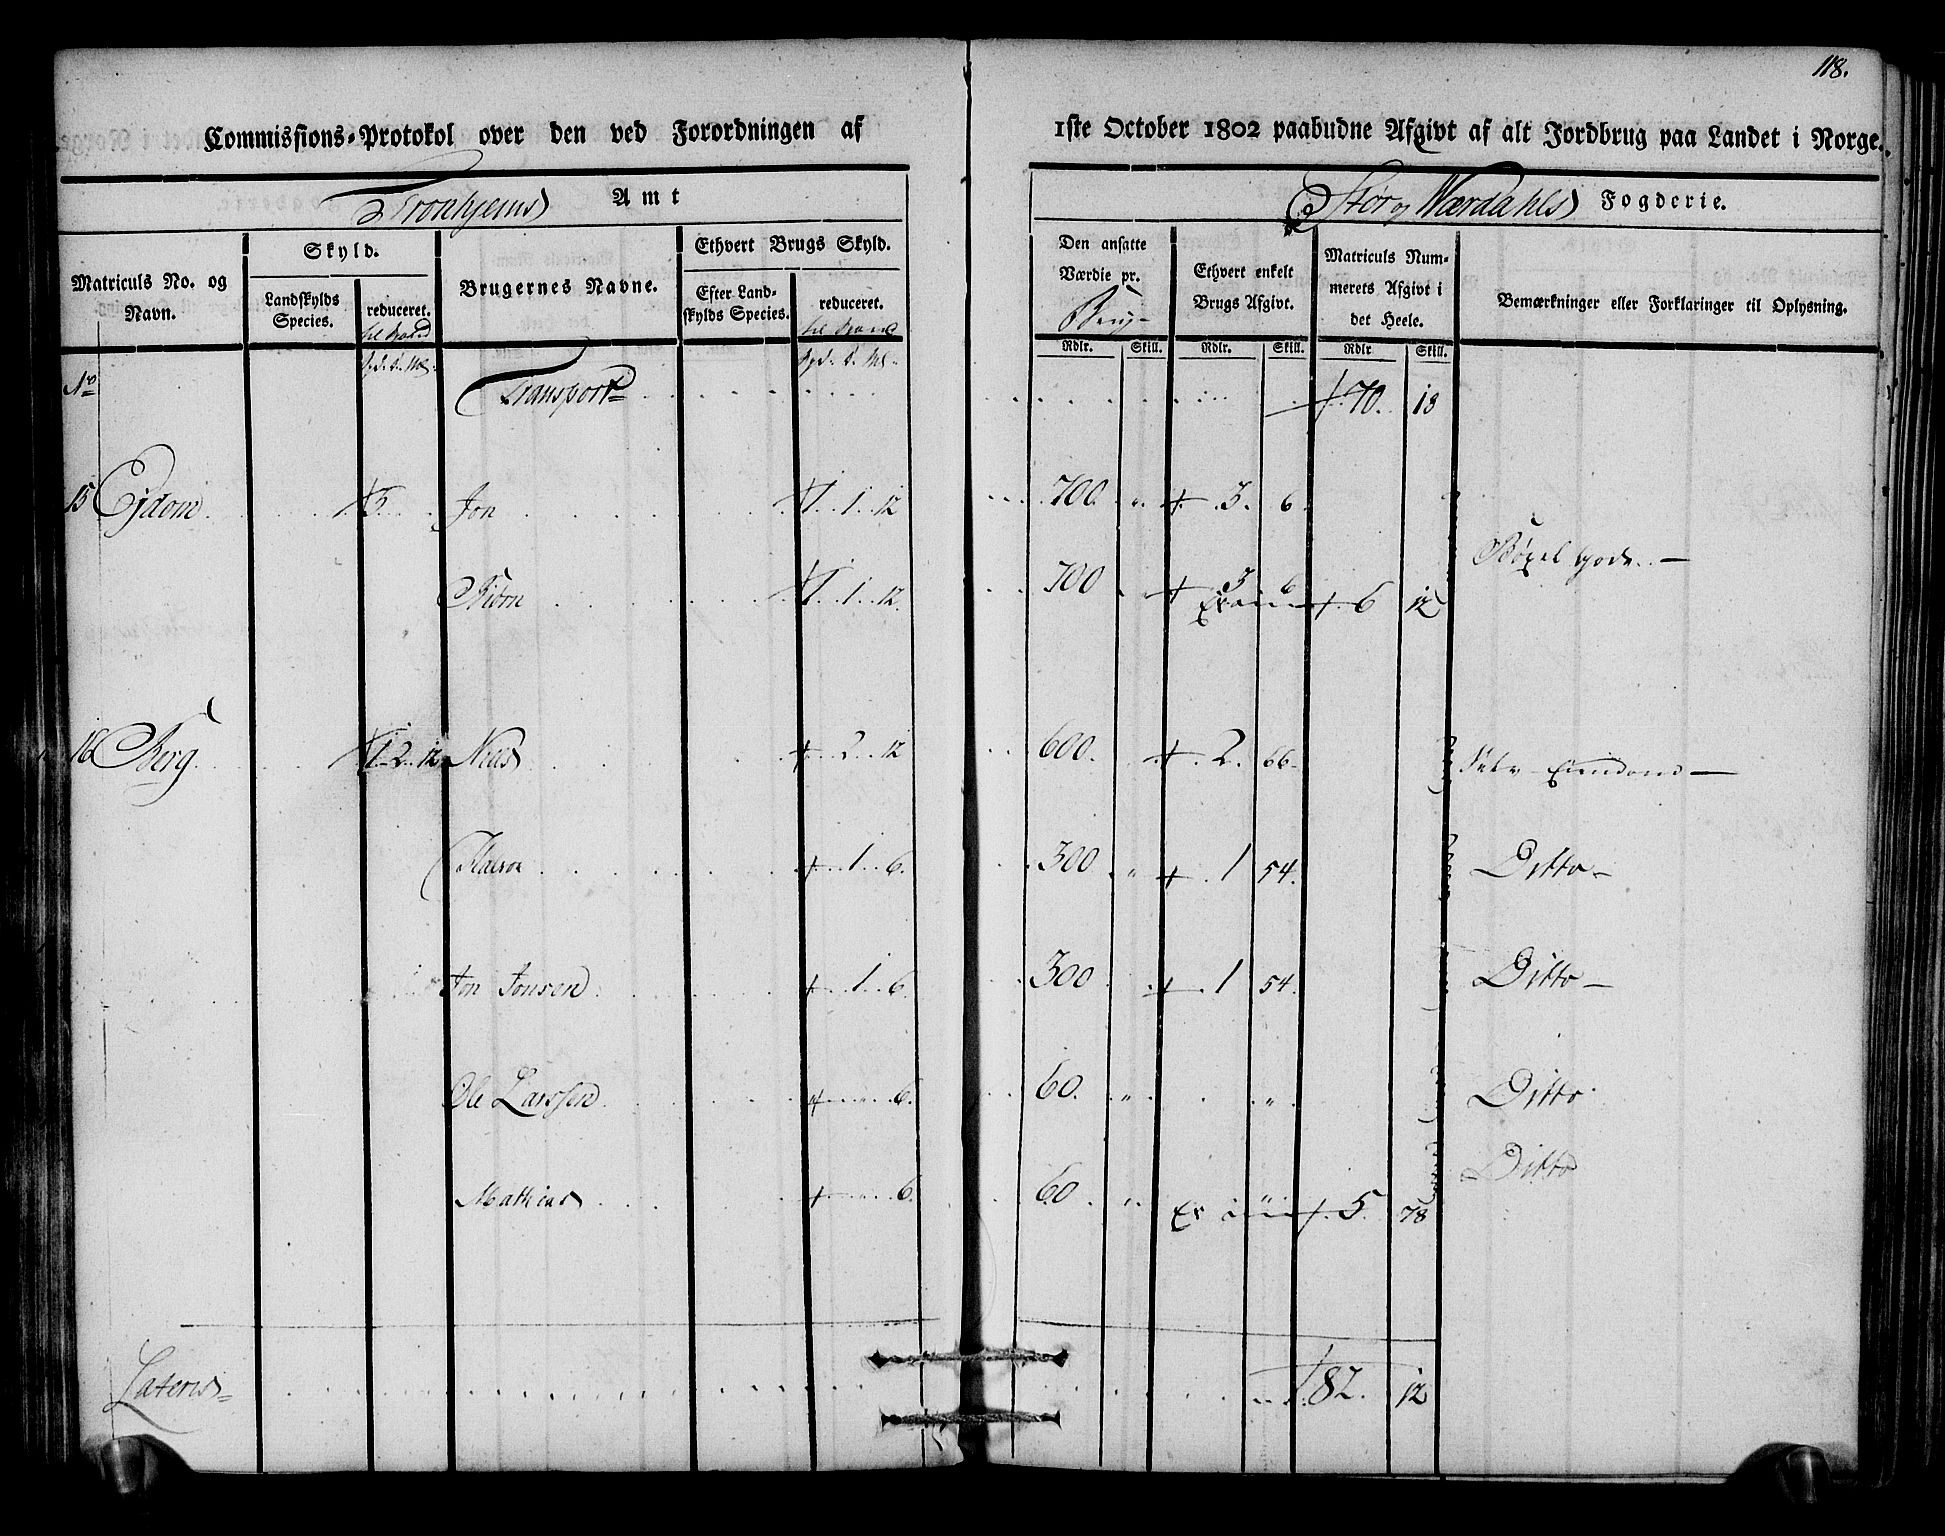 118.
Commissions-Protokol over den ved Forordningen af 1ste October 1802 paabudne Afgivt af alt Jordbrug paa Landet i Norge.
Tronhjems Amt
Stør og Wærdahls Fogderie.
Matriculs No. og Navn.
Skyld.
Landskylds Species.
reduceret.
Brugernes Navne.
Ethvert Brugs Skyld.
Efter Landskylds Species.
reduceret.
Den ansatte Værdie pr.
Brug
Ethvert enkelt Brugs Afgivt.
Matriculs Nummerets Afgivt i det Heele.
Bemærkninger eller Forklaringer til Oplysning.
Rdlr. Skill. Rdlr. Skill. Rdlr Skill.
No Transport 70. 18
15 Ejdom 3 Jon 1. 1. 12 700 " 3. 6.
Biørn 1. 1. 12. 700 3 6 6 12
Gods
16 Berg 1. 2. 12 Nils 2. 12 600. 2. 66. Selv Eiendom
1. 6. 300 " 1 54. Ditto
Jon Jonsen 1. 6. 300 1 54. Ditto
Ole Larssen " 6. 60. " " Ditto
Mathias " 6. 60. " " 5. 78 Ditto
Lateris 82. 12